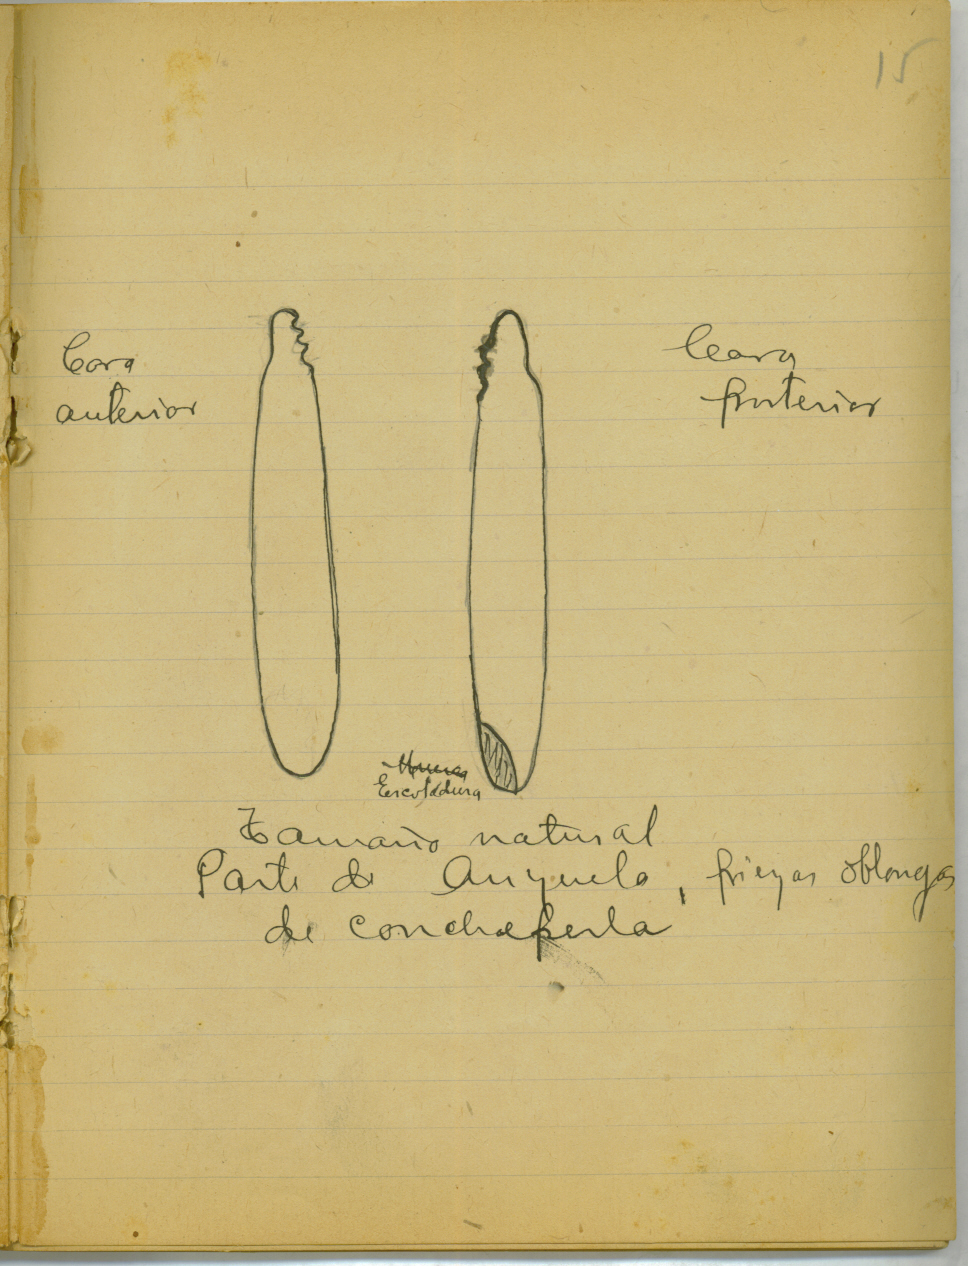 15
Cara
anterior
Cara
posterior
Escotadura
Tamaño natural
Parte de Anzuelo, piezas oblongas
de concheperla